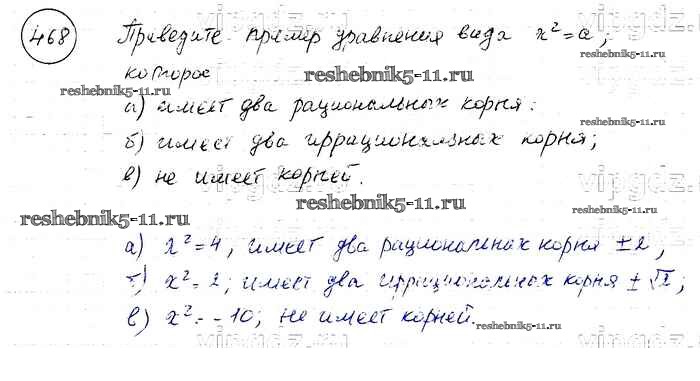 468 Приведите пример уравнения вида x² = a,
которое
а) имеет два рациональных корня.
б) имеет два иррациональных корня;
в) не имеет корней.
а) x² = 4, имеет два рациональных корня ± 2,
б) x² = 2; имеет два иррациональных корня ± √2,
в) x² = -10; не имеет корней.
vipgdz.ru
reshebnik5-11.ru
reshebnik5-11.ru
reshebnik5-11.ru
vipgdz.ru
reshebnik5-11.ru
reshebnik5-11.ru
vipgdz.ru
reshebnik5-11.ru
vipgdz.ru